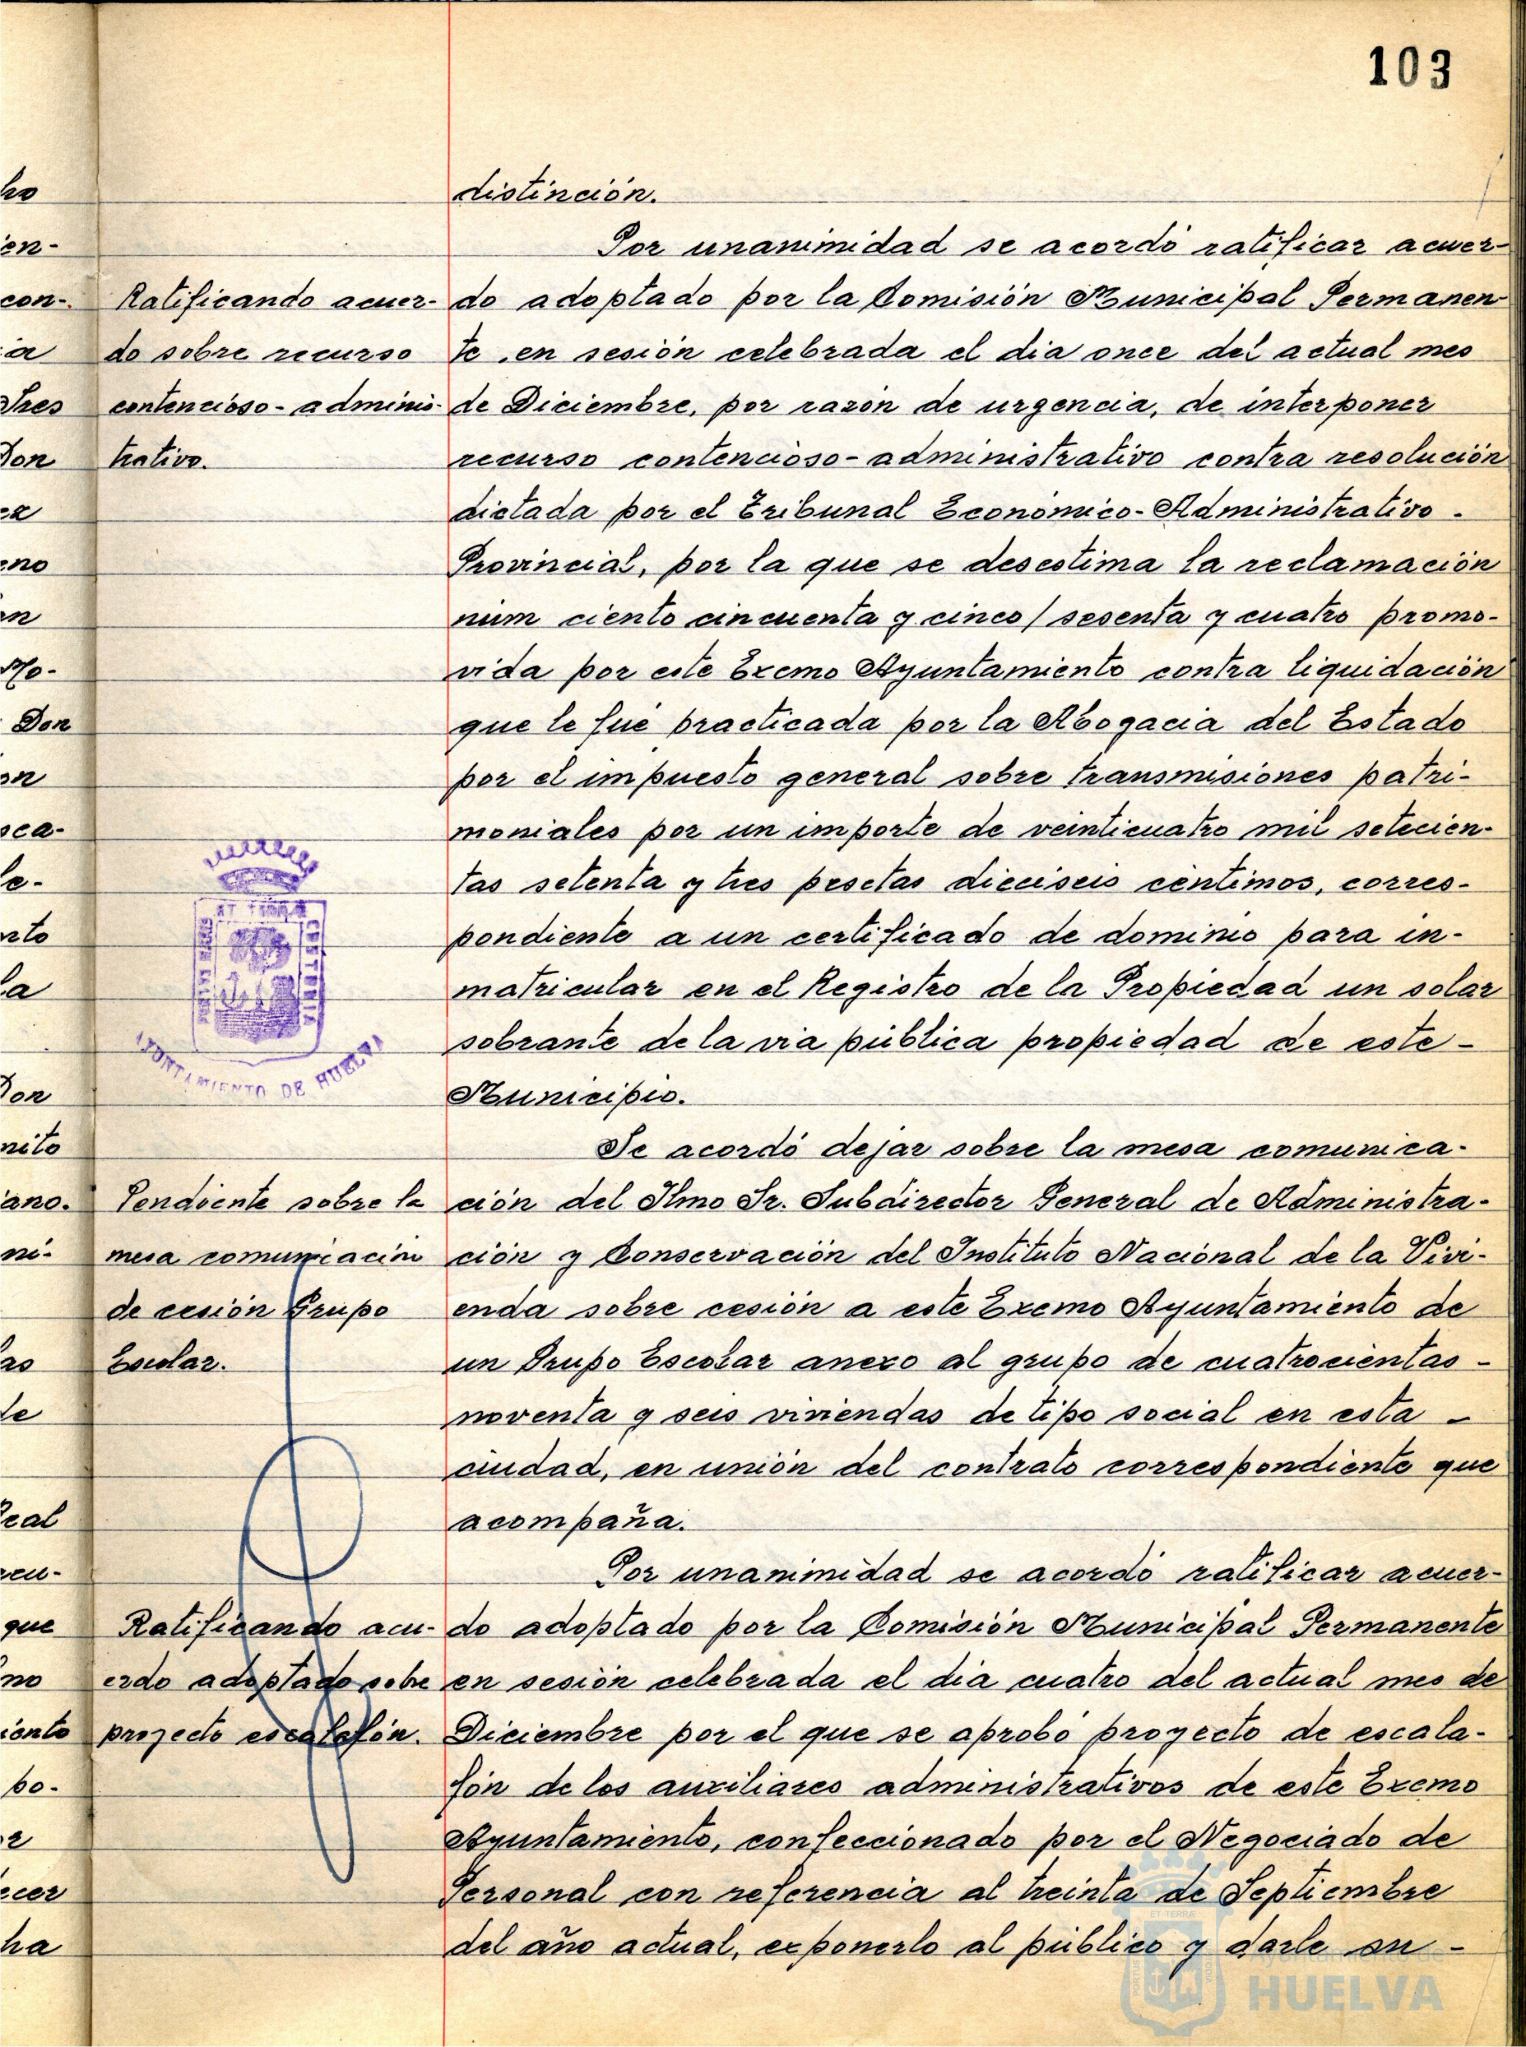 103
distinción.
Por unanimidad se acordó ratificar acuer-
Ratificando acuer-
do sobre recurso
contencioso-adminis-
trativo.
do adoptado por la Comisión Municipal Permanen-
te, en sesión celebrada el dia once del actual mes
de Diciembre, por razón de urgencia, de interponer
recurso contencioso-administrativo contra resolución
dictada por el Tribunal Económico-Administrativo-
Provincial, por la que se desestima la reclamación
núm ciento cincuenta y cinco/sesenta y cuatro promo-
vida por este Excmo Ayuntamiento contra liquidación
que le fué practicada por la Abogacia del Estado
por el impuesto general sobre transmisiones patri-
moniales por un importe de veinticuatro mil setecien-
tas setenta y tres pesetas dieciseis céntimos, corres-
pondiente a un certificado de dominio para in-
matricular en el Registro de la Propiedad un solar
sobrante de la via pública propiedad de este-
Municipio.
AYUNTAMIENTO DE HUELVA
Se acordó dejar sobre la mesa comunica-
Pendiente sobre la
mesa comunicación
de cesión Grupo
Escolar.
ción del Ilmo Sr. Subdirector General de Administra-
ción y Conservación del Instituto Nacional de la Vivi-
enda sobre cesión a este Excmo Ayuntamiento de
un Grupo Escolar anexo al grupo de cuatrocientas-
noventa y seis viviendas de tipo social en esta-
ciudad, en unión del contrato correspondiente que
acompaña.
Por unanimidad se acordó ratificar acuer-
Ratificando acu-
erdo adoptado sobre
proyecto escalafón.
do adoptado por la Comisión Municipal Permanente
en sesión celebrada el dia cuatro del actual mes de
Diciembre por el que se aprobó proyecto de escala-
fón de los auxiliares administrativos de este Excmo
Ayuntamiento, confeccionado por el Negociado de
Personal con referencia al treinta de Septiembre
del año actual, exponerlo al público y darle su-
Ayuntamiento de
HUELVA